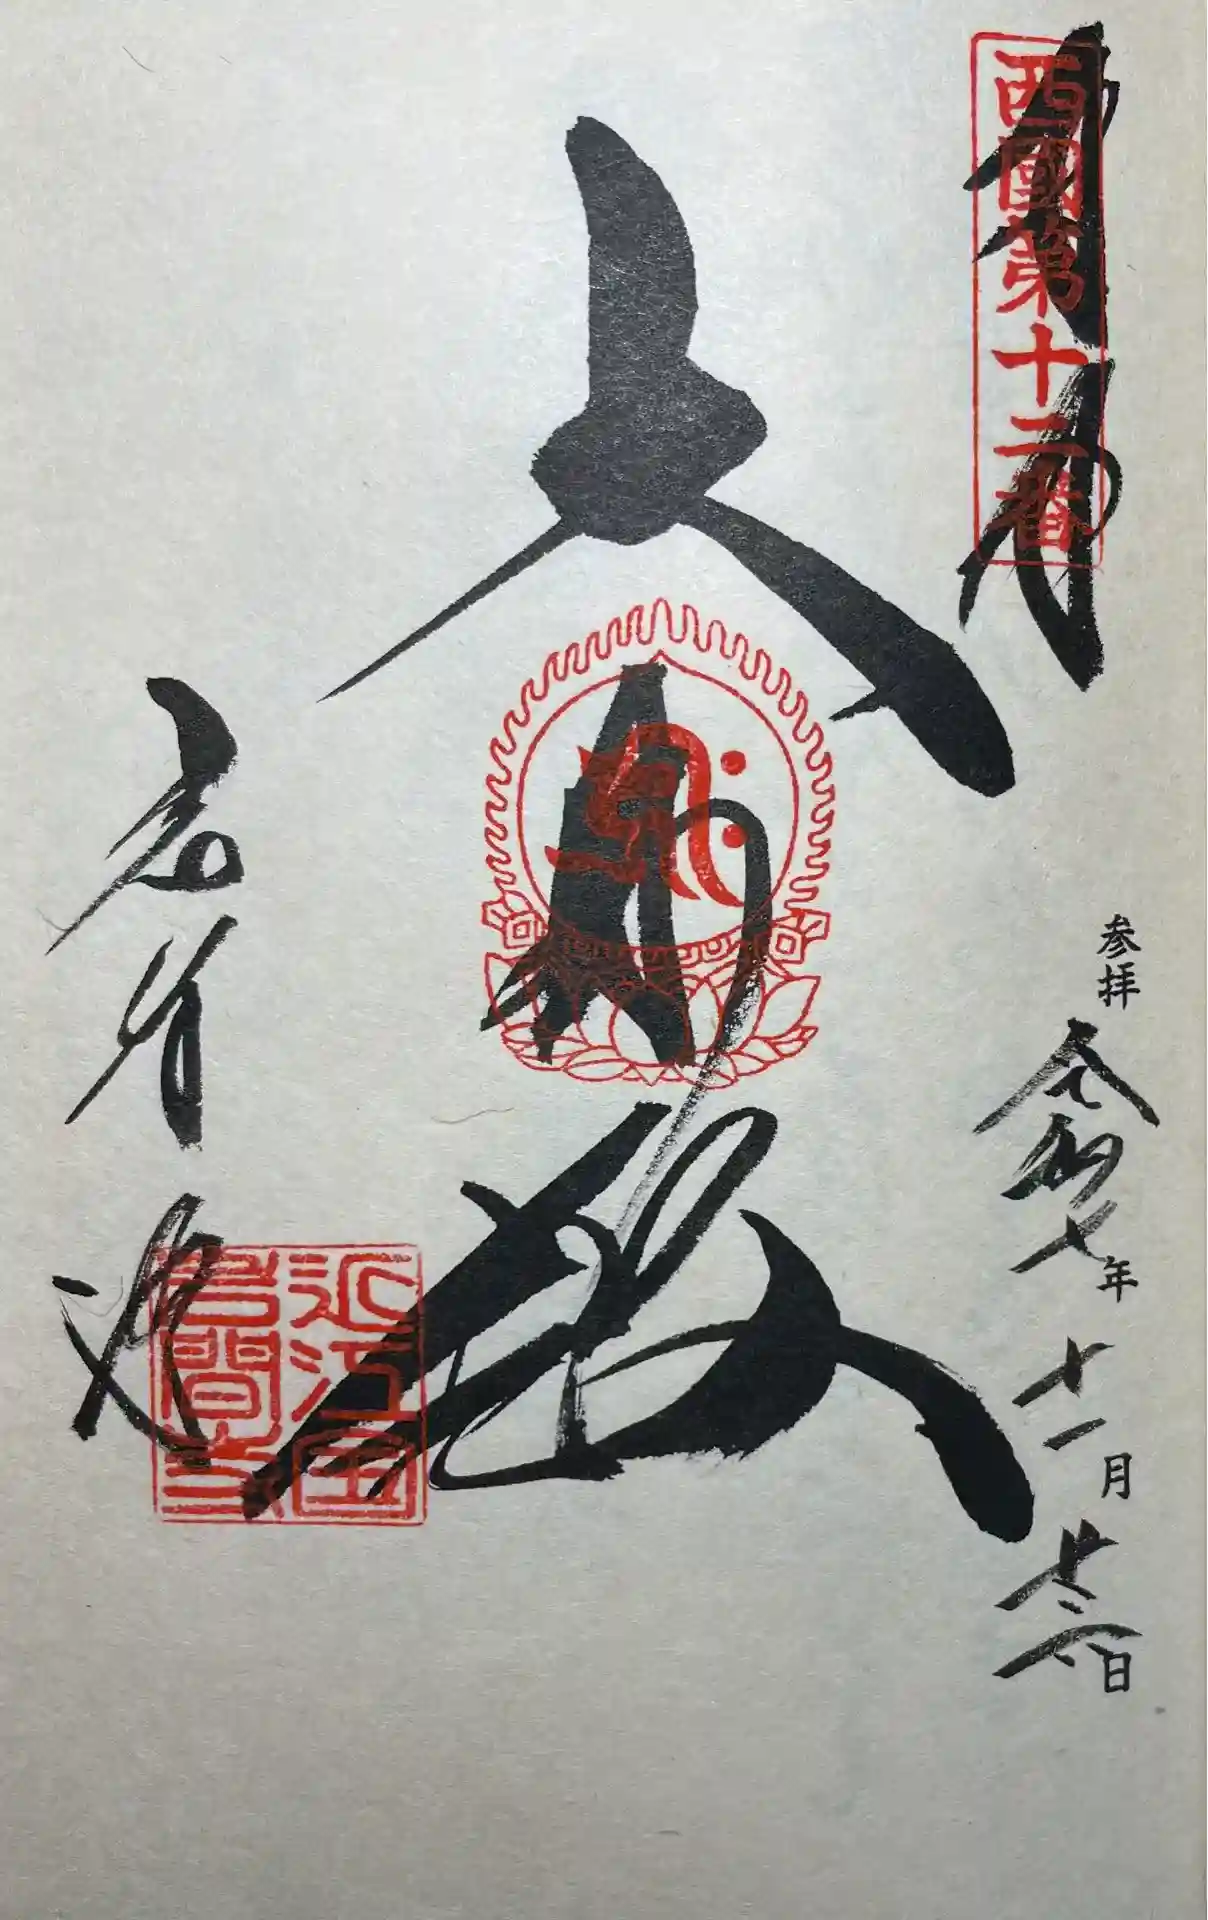 奉拝
西國第十二番
参拝 令和七年十一月廿三日
大悲殿
岩間寺
近江国
岩間寺